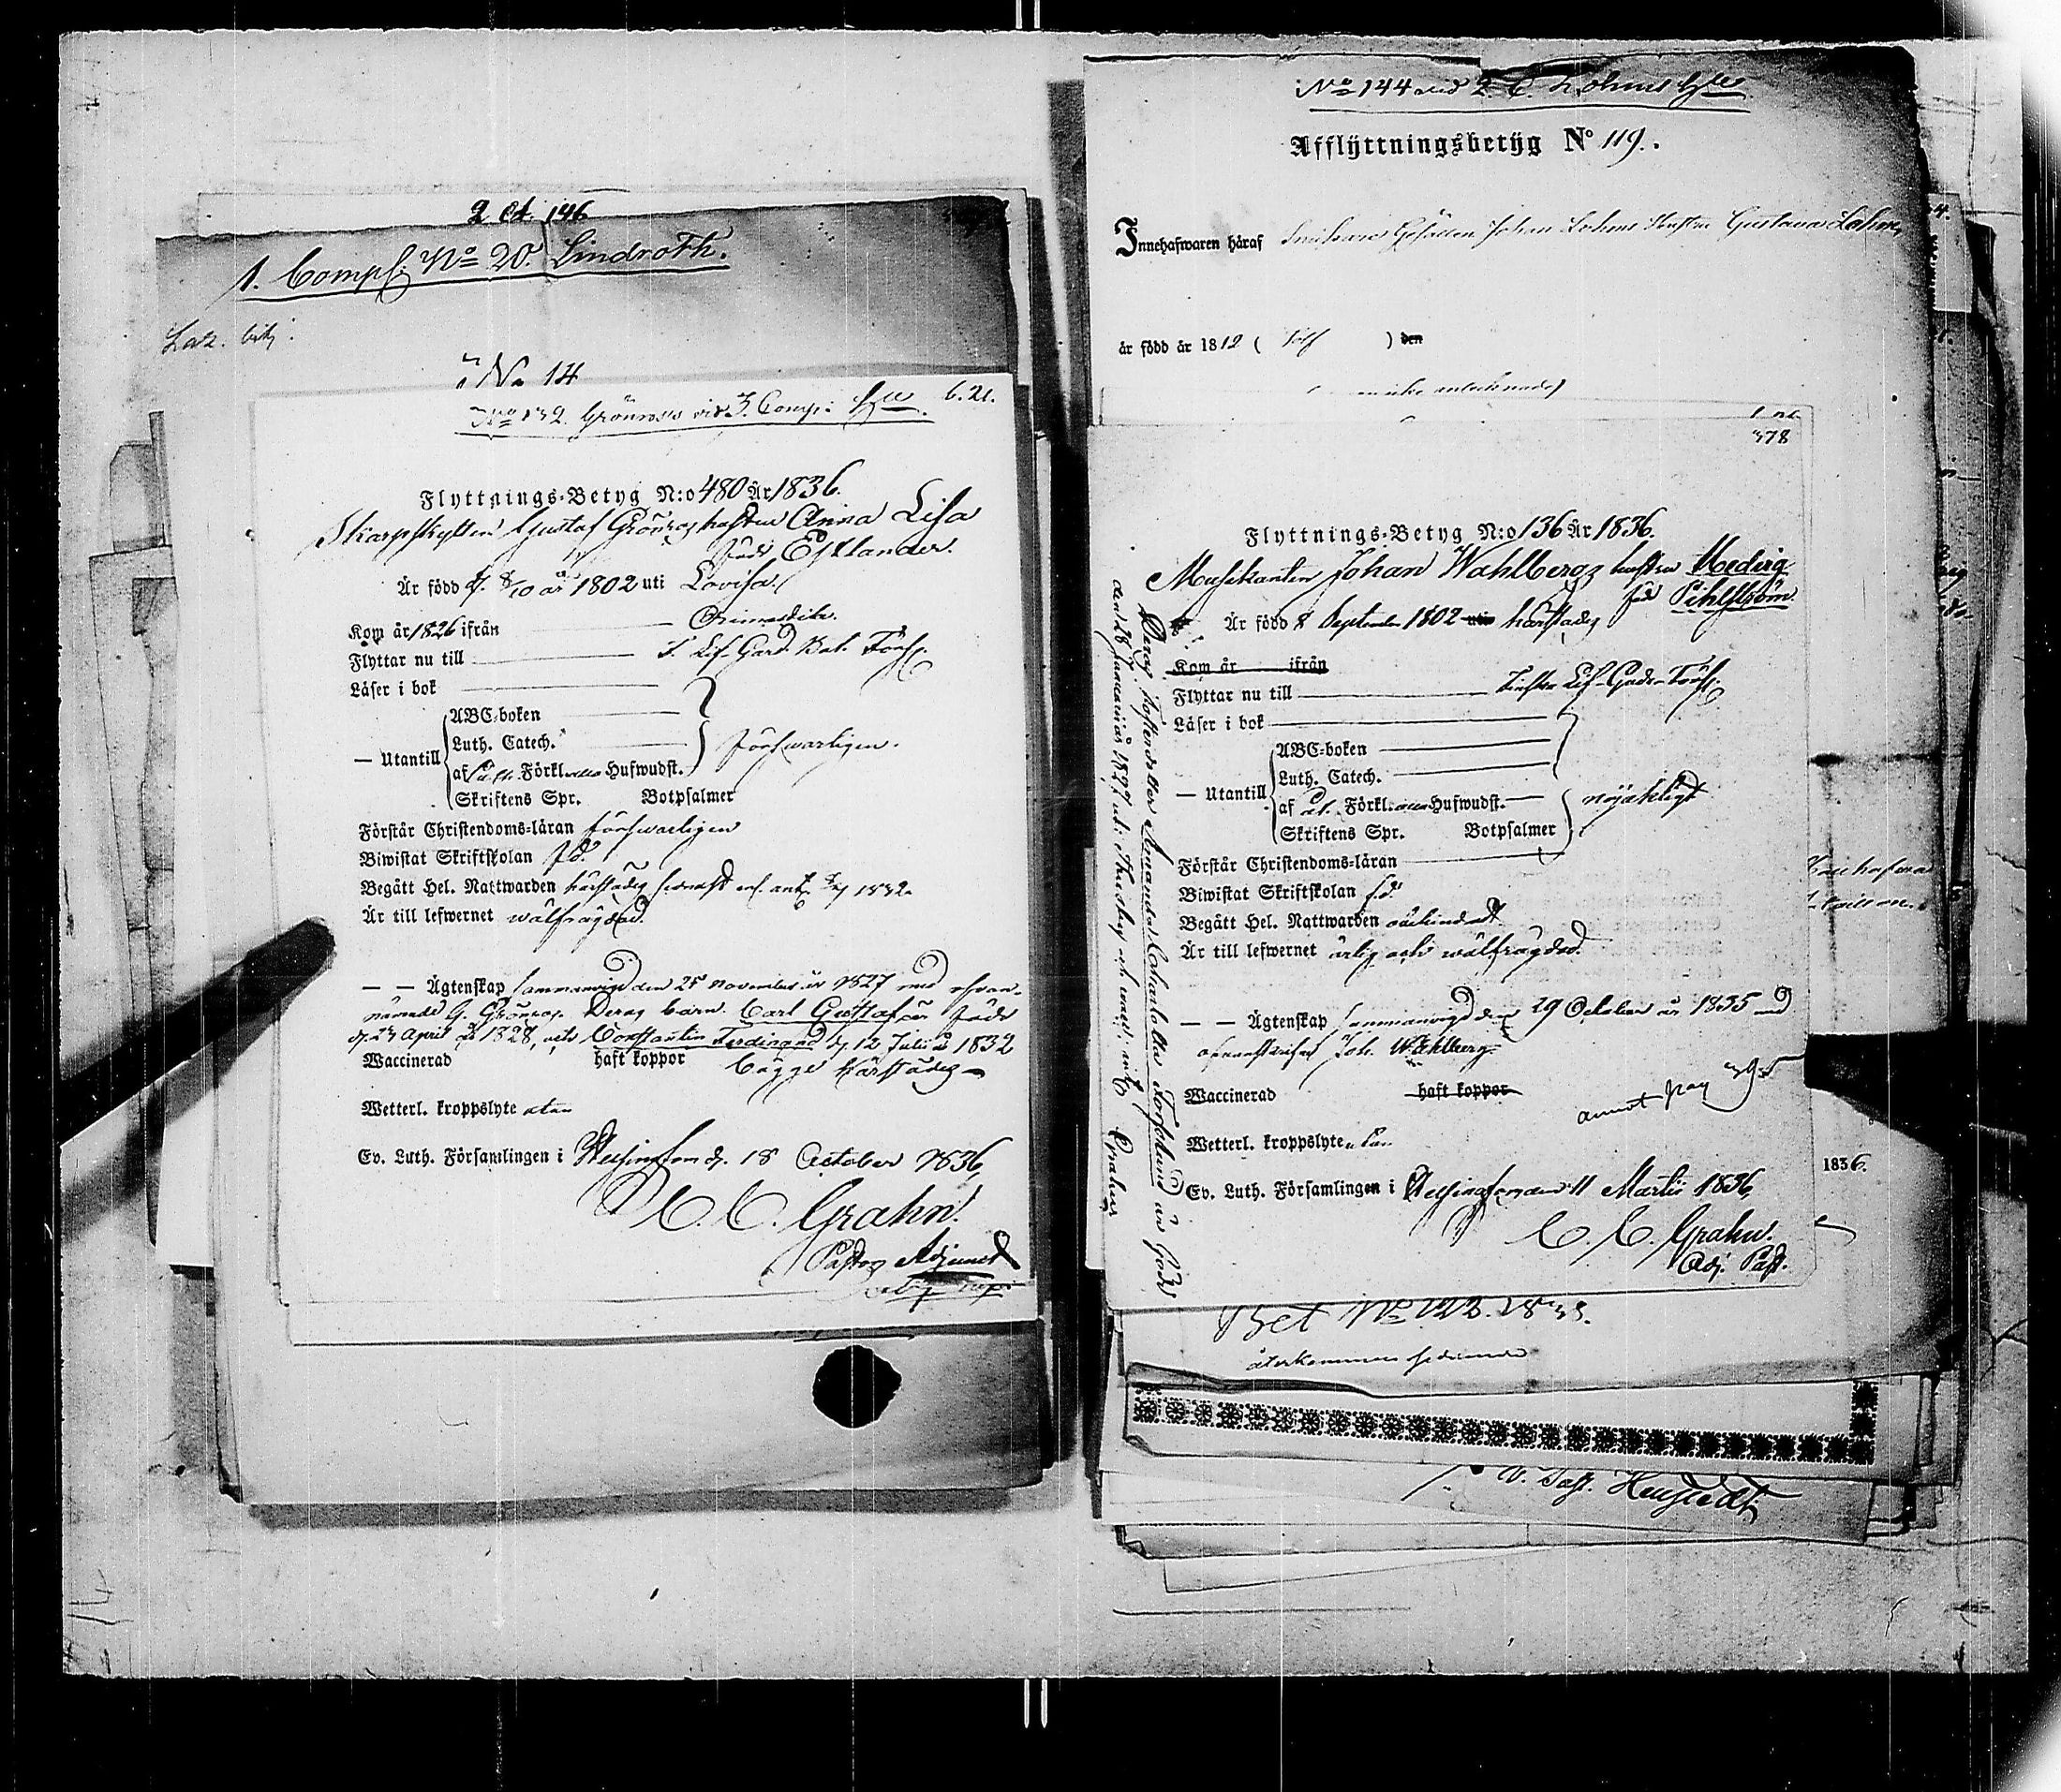 2 Cd. 146
1. Comp: No 20. Lindroth.
No 14
No 132. Grönroos vid 3. Comp: 6.21.
Flyttnings-Betyg N:o 480 År 1836.
Skarpskytten Gustaf Grönroos hustru Anna Lisa
född Esklander.
Är född d. 8/10 år 1802 uti Lovisa
Kom år 1826 ifrån
Flyttar nu till Lif Gard. Bat. Förs.
Läser i bok
— Utantill
ABC-boken
Luth. Catech.
af Förkl. Hufwudst.
Skriftens Spr. Botpsalmer
försvarligen.
Förstår Christendoms-läran försvarligen
Biwistat Skriftskolan
Begått Hel. Nattwarden härstädes
Är till lefwernet wälfrägdad.
— — Ägtenskap sammanvigd den 25 november år 1827 med ofvan-
nämnde G. Grönroos. Deras barn Carl Gustaf är född
d. 23 April år 1828, och Constantin Ferdinand d. 12 Julii 1832
Waccinerad haft koppor bägge härstädes
Wetterl. kroppslyte utan
Ev. Luth. Församlingen i Helsingfors d. 18 October 1836,
C. C. Grahn.
Pastors Adjunct
No 144 vid 2. C. Lohms
Afflÿttningsbetÿg No 119.
Innehafwaren häraf Gesällen Johan Lohms Hustru Gustava
är född år 1812 ( Tolf ) den
378
Flyttnings-Betyg N:o 136 År 1836.
Musikanten Johan Wahlbergs hustru Hedvig
född Pihlström.
Är född 8 September 1802 uti härstädes
Kom år ifrån
Flyttar nu till Finska Lif-Gardes-Förs.
Läser i bok
— Utantill
ABC-boken
Luth. Catech.
af Förkl. Hufwudst.
Skriftens Spr. Botpsalmer
nöjaktligt
Förstår Christendoms-läran
Biwistat Skriftskolan
Begått Hel. Nattwarden oklandradt
Är till lefwernet ärlig och wälfrägdad.
— — Ägtenskap sammanvigd den 29 October år 1835 med
Joh. Wahlberg.
Waccinerad haft koppor
annot pag 395
Wetterl. kroppslyte utan
Ev. Luth. Församlingen i Helsingfors den 11 Martii 1836,
C. C. Grahn.
Adj. Past.
Deras fosterdotter Amanda Charlotta är född
den 28 Januarii år 1827 Grahn
1836.
Bet No 122.
återkommen
V. Past.